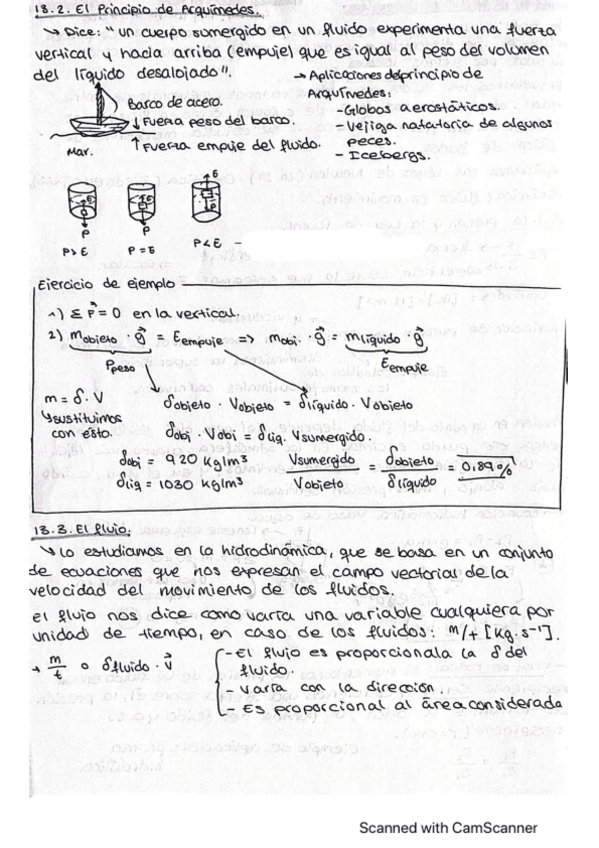 13.2. El Principio de Arquímedes.
↳ Dice: "un cuerpo sumergido en un fluido experimenta una fuerza
vertical y hacia arriba (empuje) que es igual al peso del volumen
del líquido desalojado".
→ Aplicaciones del principio de
Arquímedes:
- Globos aerostáticos.
- Vejiga natatoria de algunos
peces.
- Icebergs.
Barco de acero.
↓ Fuerza peso del barco.
↑ Fuerza empuje del fluido.
Mar.
E E E
P P P
P > E P = E P < E -
Ejercicio de ejemplo
1) Σ F⃗ = 0 en la vertical.
2) m objeto · g⃗ = E empuje => m obj. · g⃗ = m líquido · g⃗
P peso E empuje
m = δ · V
↳ sustituimos
con esto.
δ objeto · V objeto = δ líquido · V objeto
δ obj · V obj = δ liq. V sumergido.
δ obj = 920 kg/m³
δ liq = 1030 kg/m³
V sumergido / V objeto = δ objeto / δ líquido = 0,89%
13.3. El flujo.
↳ Lo estudiamos en la hidrodinámica, que se basa en un conjunto
de ecuaciones que nos expresan el campo vectorias de la
velocidad del movimiento de los fluidos.
El flujo nos dice como varía una variable cualquiera por
unidad de tiempo, en caso de los fluidos: m/t [kg·s⁻¹].
→ m/t o δ fluido · v⃗
- El flujo es proporcional a la δ del
fluido.
- Varía con la dirección.
- Es proporcional al área considerada
Scanned with CamScanner